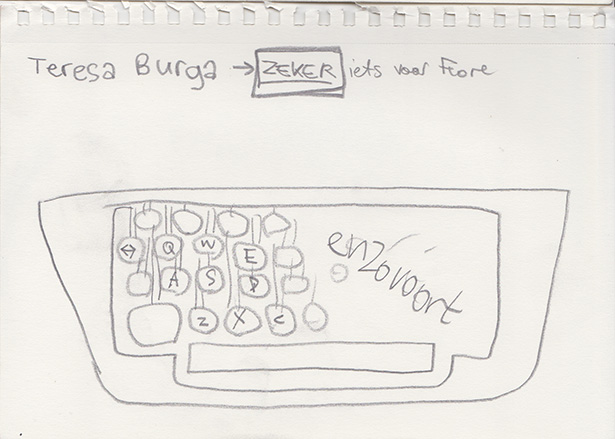 Teresa Burga → ZEKER iets voor Flore
↔ Q W E
A S D
Z X C
enzovoort